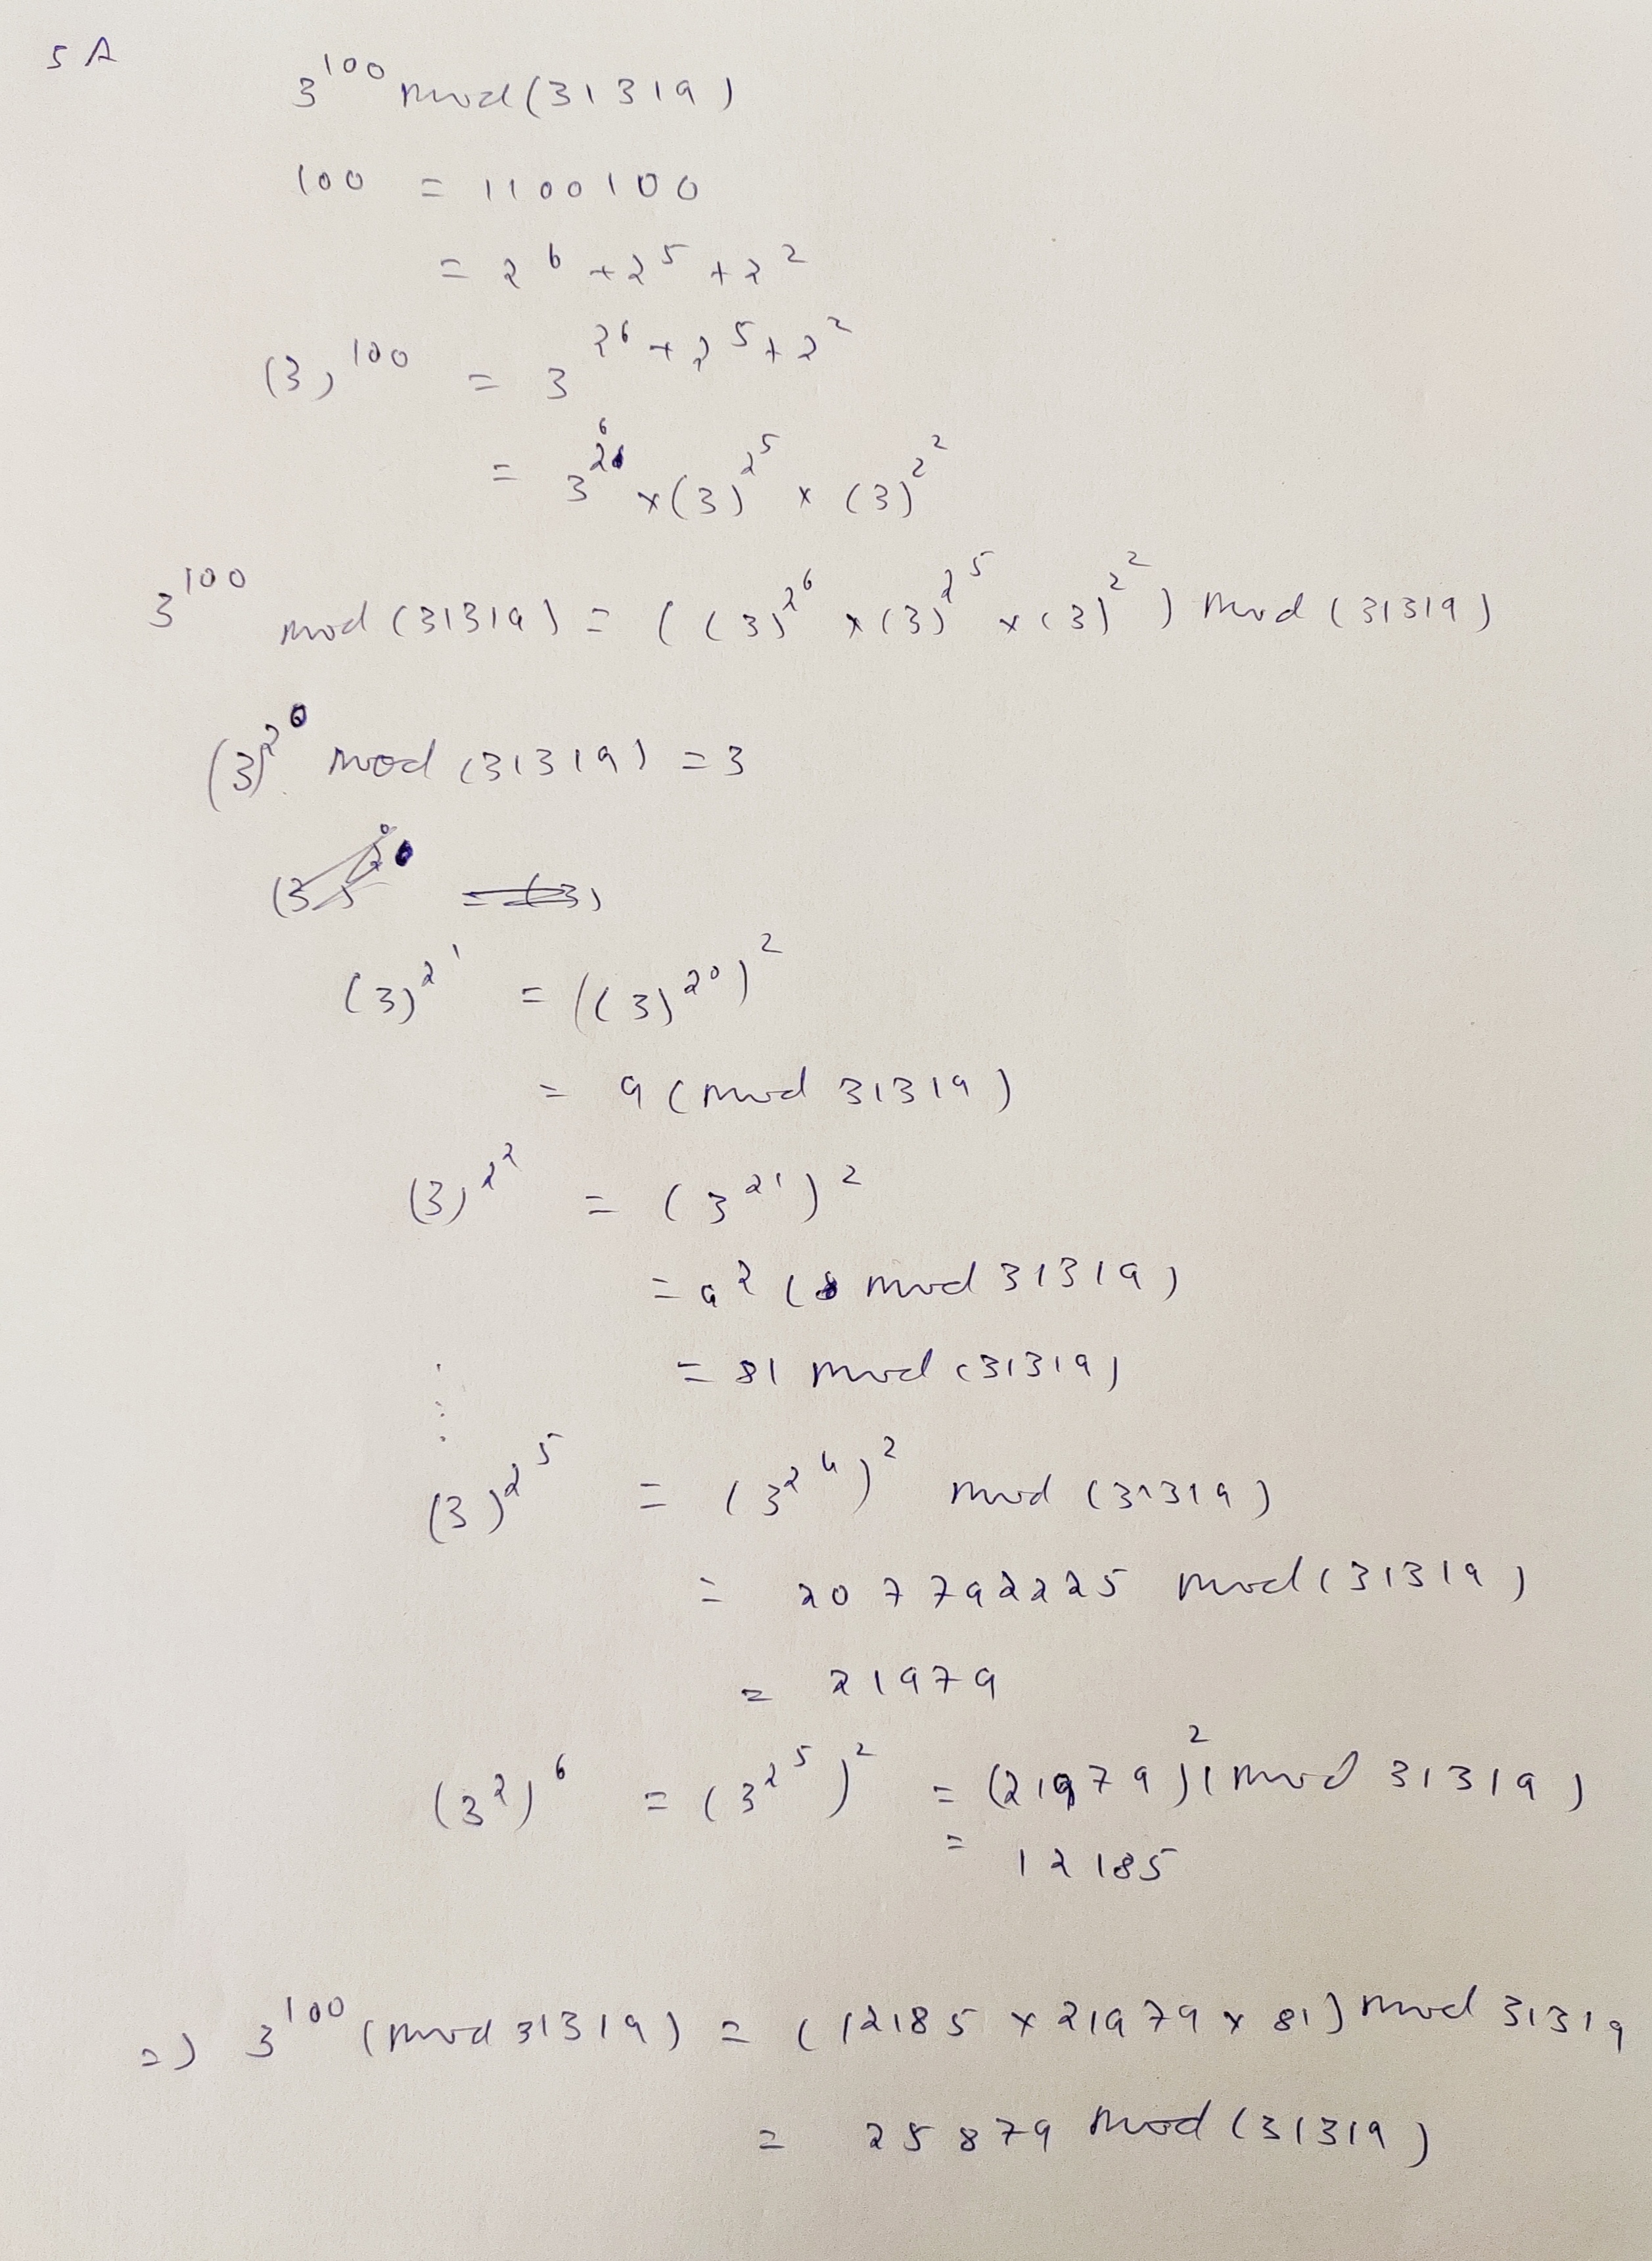 5A
3^100 mod(31319)
100 = 1100100
= 2^6 + 2^5 + 2^2
(3)^100 = 3^2^6 + 2^5 + 2^2
= 3^2^6 × (3)^2^5 × (3)^2^2
3^100 mod (31319) = ((3)^2^6 × (3)^2^5 × (3)^2^2) mod (31319)
(3)^2^0 mod (31319) = 3
(3)^2^1 = ((3)^2^0)^2
= 9 (mod 31319)
(3)^2^2 = (3^2^1)^2
= 9^2 (mod 31319)
= 81 mod (31319)
⋮
(3)^2^5 = (3^2^4)^2 mod (31319)
= 207792225 mod (31319)
= 21979
(3^2)^6 = (3^2^5)^2 = (21979)^2 (mod 31319)
= 12185
=) 3^100 (mod 31319) = (12185 × 21979 × 81) mod 31319
= 25879 mod (31319)